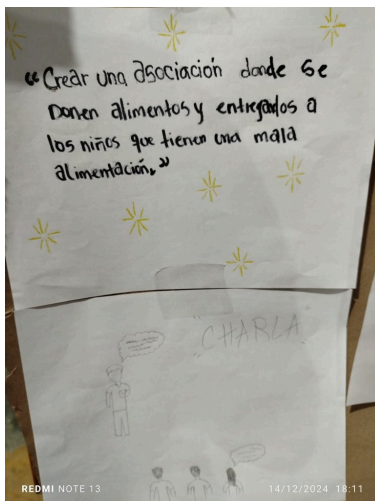 "Crear una asociación donde se
Donen alimentos y entregarlos a
los niños que tienen una mala
alimentación."
"CHARLA"
REDMI NOTE 13
14/12/2024 18:11